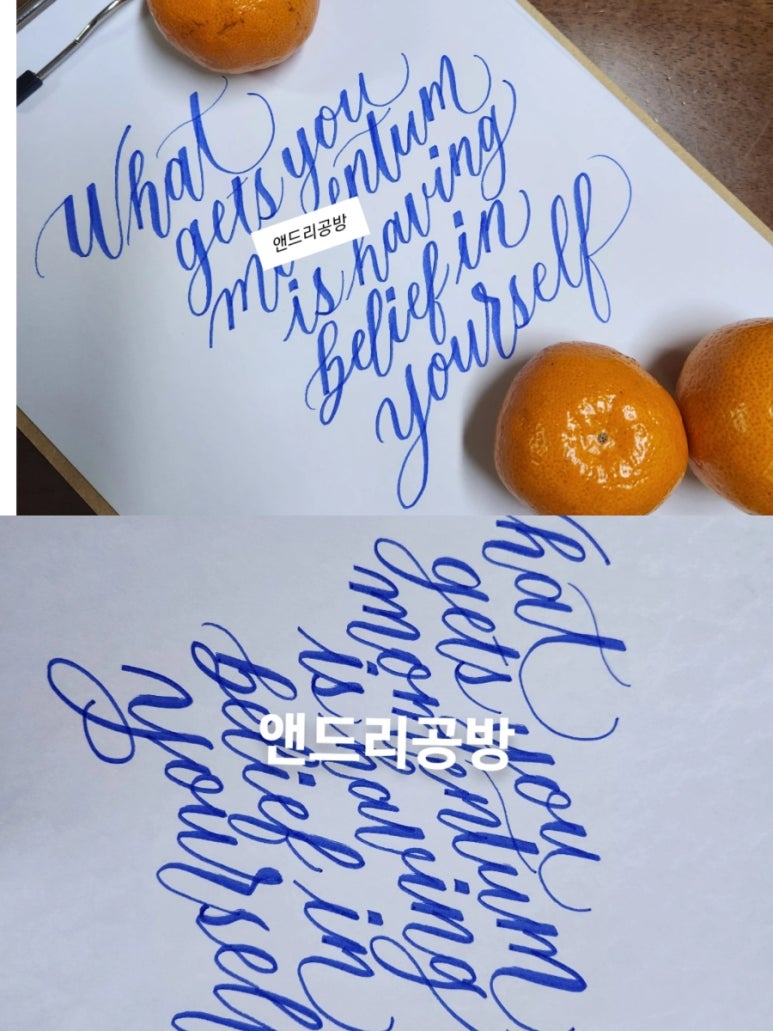 What
gets you
momentum
is having
belief in
yourself
앤드리공방
hat
gets you
momentum
is having
belief in
yoursel
앤드리공방